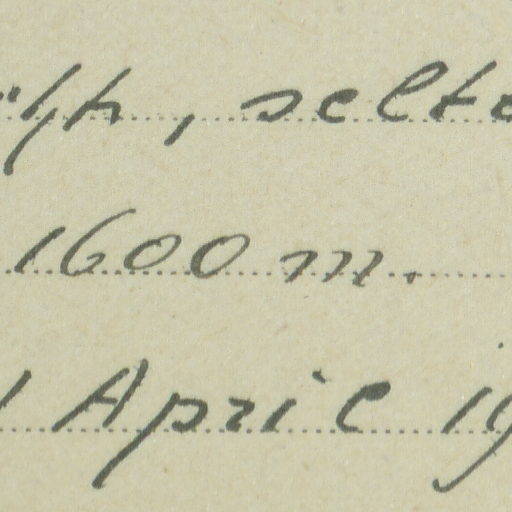 , selte
1600 m.
April 19